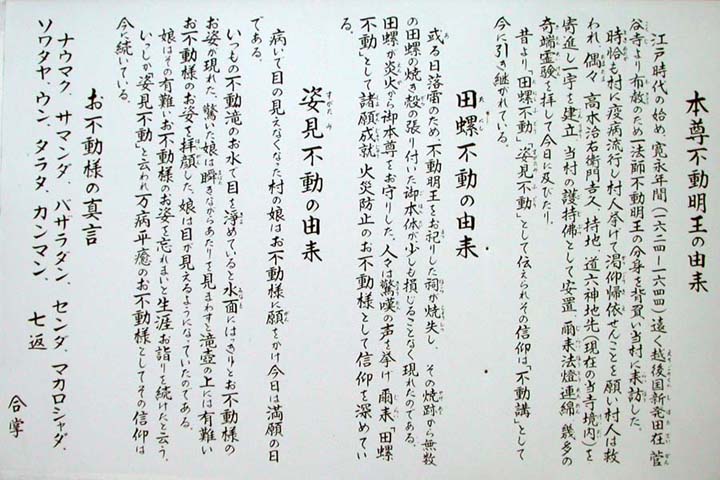 本尊不動明王の由来
江戸時代の始め、寛永年間(一六二四-一六四四)遠く越後国新発田在菅
谷寺より布教のため一法師不動明王の分身を背負い当村に来訪した。
時恰も村に疫病流行し村人挙げて渇仰帰依せんことを願い村人は救
われ、偶々 高水治右衛門吉又 持地、道六神地先(現在の当寺境内)を
寄進し一宇を建立 当村の護持佛として安置、爾来法燈連綿 幾多の
奇端霊験を拝して今日に及びたり。
昔より、「田螺不動」「姿見不動」として伝えられその信仰は「不動講」として
今に引き継がれている。
田螺不動の由来
或る日落雷のため、不動明王をお祀りした祠が焼失し、その焼跡から無数
の田螺の焼き殻の張り付いた御本体が少しも損じることなく現れたのである。
田螺が災火から御本尊をお守りした。人々は驚嘆の声を挙げ 爾来「田螺
不動」として諸願成就、火災防止のお不動様として信仰を深めてい
る。
姿見不動の由来
病いで目の見えなくなった村の娘はお不動様に願をかけ今日は満願の日
である。
いつもの不動滝のお水で目を淨めていると水面には「きりっ」とお不動様の
お姿が現れた。驚いた娘は瞬きながらあたりを見まわすと滝壺の上には有難い
お不動様のお姿を拝顔した。お娘は目が見えるようになっていたのである。
娘はその有難いお不動様のお姿を忘れまいと生涯お詣りを続けたと云う。
いつしか「姿見不動」と云われ万病平癒のお不動様としてその信仰は
今に続いている。
お不動様の真言
ナウマク、サマンダ、バザラダン、センダ、マカロシャダ、
ソワタヤ、ウン、タラタ、カンマン、 七返
合掌